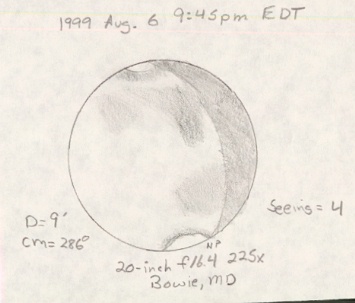 1999 Aug. 6 9:45pm EDT
Seeing = 4
D=9"
CM=286°
NP
20-inch f/6.4 225x
Bowie, MD